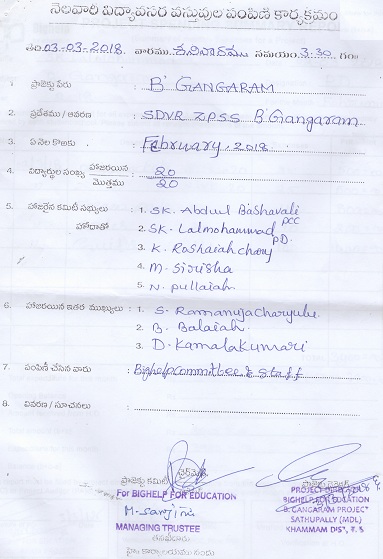 నెలవారీ విద్యావసర వస్తువుల పంపిణీ కార్యక్రమం
తేది 03-03-2018 వారము శనివారము సమయం 3:30 గం
1. ప్రాజెక్టు పేరు : B' GANGARAM
2. ప్రదేశము / ఆవరణ : SDVR ZPSS B'Gangaram
3. ఏ నెల కొఱకు : February, 2018
4. విద్యార్థుల సంఖ్య హాజరయిన : 20
మొత్తము 20
5. హాజరైన కమిటీ సభ్యులు : 1. SK. Abdul Bashavali PCC
హోదాతో 2. SK. Lalmohammad P.D.
3. K. Roshaiah chary
4. M. Sirisha
5. N. Pullaiah
6. హాజరయిన ఇతర ముఖ్యులు : 1. S. Ramanujacharyulu
2. B. Balaiah
3. D. Kamalakumari
7. పంపిణీ చేసిన వారు : Bighelp Committee & Staff
8. వివరణ / సూచనలు :
ప్రాజెక్టు కమిటీ ఛైర్మెన్
For BIGHELP FOR EDUCATION
M. Sarojini
MANAGING TRUSTEE
PROJECT
BIGHELP FOR EDUCATION
B. GANGARAM PROJECT
SATHUPALLY (MDL)
KHAMMAM DIST, T.S